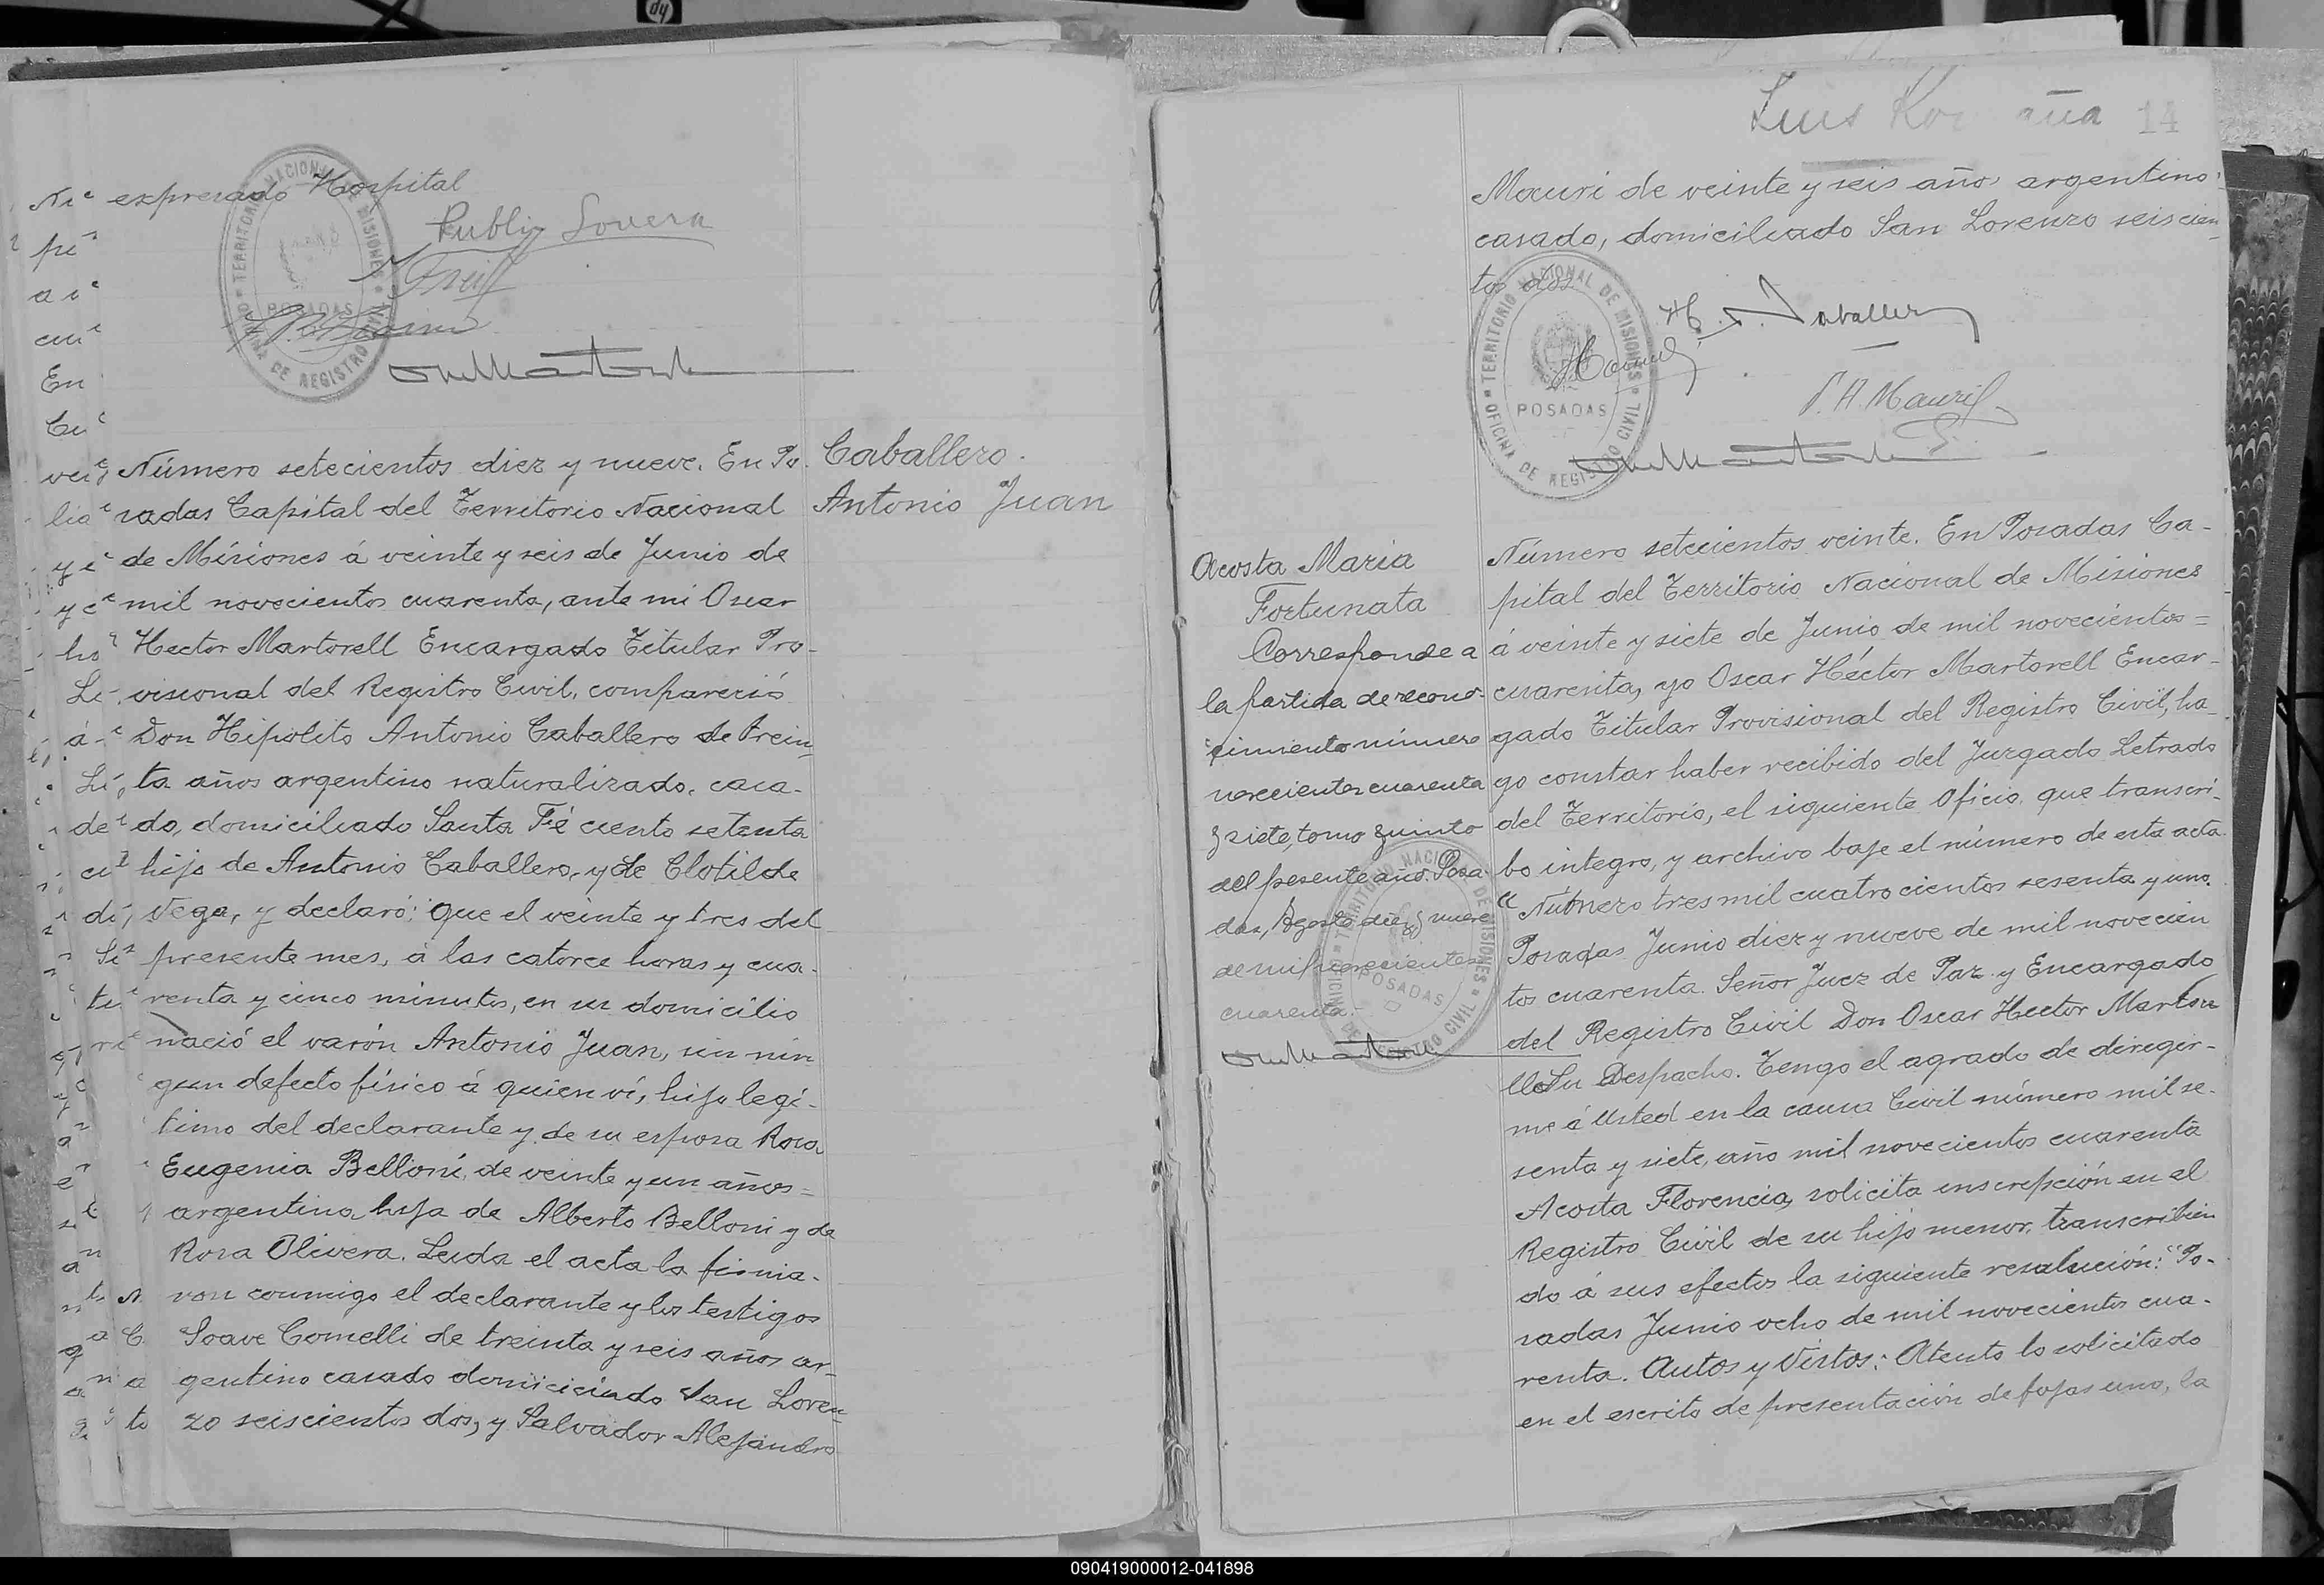 expresado Hospital
TERRITORIO NACIONAL DE MISIONES
POSADAS
OFICINA DE REGISTRO CIVIL
Número setecientos diez y nueve. En Po-
sadas Capital del Territorio Nacional
de Misiones á veinte y seis de Junio de
mil novecientos cuarenta, ante mi Oscar
Hector Martorell Encargado Titular Pro-
visional del Registro Civil, compareció
Don Hipólito Antonio Caballero de trein-
ta años argentino naturalizado, casa-
do, domiciliado Santa Fé ciento setenta
hijo de Antonio Caballero, y de Clotilde
Vega, y declaró: que el veinte y tres del
presente mes, á las catorce horas y cua-
renta y cinco minutos, en su domicilio
nació el varón Antonio Juan, sin nin
gun defecto físico á quien ví, hijo legí-
timo del declarante y de su esposa Rosa
Eugenia Belloni, de veinte y un años=
argentina hija de Alberto Belloni y de
Rosa Olivera. Leida el acta la firma-
ron conmigo el declarante y los testigos
Soave Comelli de treinta y seis años ar-
gentino casado domiciciado San Loren-
zo seiscientos dos, y Salvador Alejandro
Caballero.
Antonio Juan
Luis
14
Mauri de veinte y seis años argentino
casado, domiciliado San Lorenzo seiscien-
tos dos.
H. A. Caballero
S. A. Mauri
TERRITORIO NACIONAL DE MISIONES
POSADAS
OFICINA DE REGISTRO CIVIL
Acosta Maria
Fortunata
Corresponde a
la partida de recono-
cimiento número
novecientos cuarenta
y siete, tomo quinto
del presente año. Posa-
das, Agosto diez y nueve
de mil novecientos
cuarenta.-
Número setecientos veinte. En Posadas Ca-
pital del Territorio Nacional de Misiones
á veinte y siete de Junio de mil novecientos=
cuarenta, yo Oscar Héctor Martorell Encar-
gado Titular Provisional del Registro Civil, ha-
go constar haber recibido del Juzgado Letrado
del Territorio, el siguiente Oficio, que transcri-
bo integro, y archivo baje el número de esta acta
"Número tres mil cuatrocientos sesenta y uno.
Posadas Junio diez y nueve de mil novecien
tos cuarenta. Señor Juez de Paz y Encargado
del Registro Civil Don Oscar Hector Martore
llo Su Despacho. Tengo el agrado de dirigir-
me á Usted en la causa Civil número mil se-
senta y siete, año mil novecientos cuarenta
Acosta Florencia, solicita inscripción en el
Registro Civil de su hijo menor, transcribien
do á sus efectos la siguiente resolución: "Po-
sadas Junio ocho de mil novecientos cua-
renta. Autos y Vistos: Atento lo solicitado
en el escrito de presentación de fojas uno, la
090419000012-041898